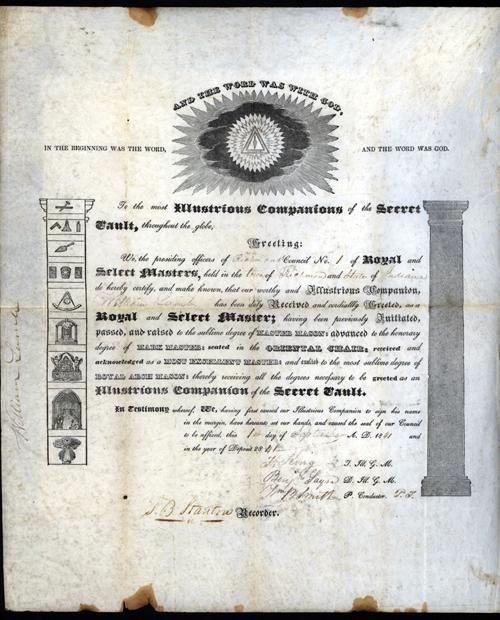 AND THE WORD WAS WITH GOD,
IN THE BEGINNING WAS THE WORD, AND THE WORD WAS GOD.
To the most Illustrious Companions of the Secret
Vault, throughout the globe,
Greeting:
We, the presiding officers of Council No. 1 of Royal and
Select Masters, held in the town of Richmond and State of Indiana
do hereby certify, and make known, that our worthy and Illustrious Companion,
William has been duly Received and cordially Greeted, as a
Royal and Select Master; having been previously Initiated,
passed, and raised to the sublime degree of MASTER MASON: advanced to the honorary
degree of MARK MASTER: seated in the ORIENTAL CHAIR; received and
acknowledged as a MOST EXCELLENT MASTER: and exalted to the most sublime degree of
ROYAL ARCH MASON: thereby receiving all the degrees necessary to be greeted as an
Illustrious Companion of the Secret Vault.
In Testimony whereof, We, having first caused our Illustrious Companion to sign his name
in the margin, have hereunto set our hands, and caused the seal of our Council
to be affixed, this 1st day of September A. D. 1841 and
in the year of Deposit 2841
King T. Ill. G. M.
Benj. D. Ill. G. M.
Wm B Smith P. Conductor. P. T.
J. B. Stanton Recorder.
William